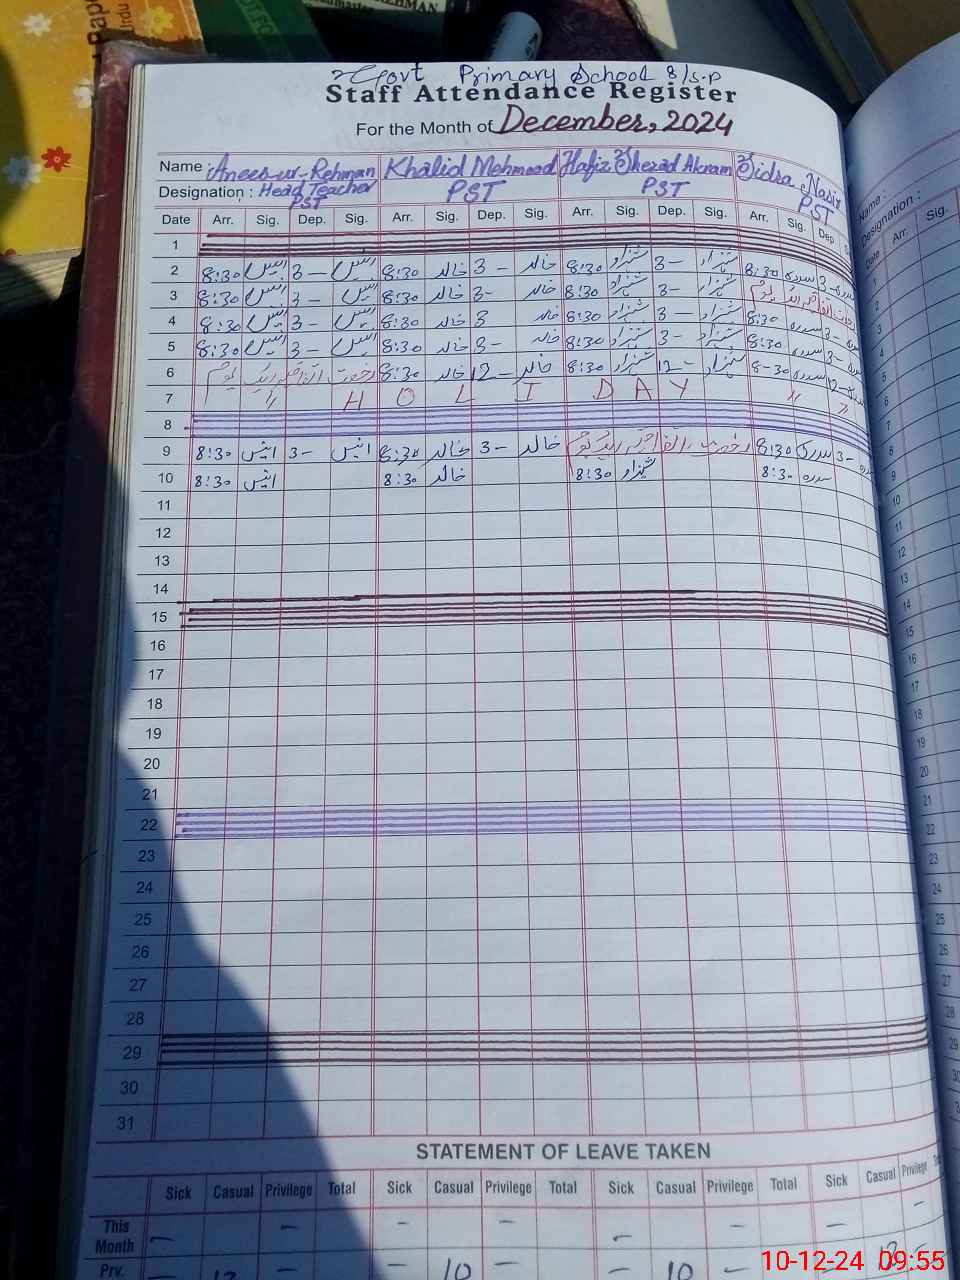 Govt Primary School 8/s.p
Staff Attendance Register
For the Month of December, 2024
Name : Anees-ur-Rehman Khalid Mehmood Hafiz Shezad Akram Sidra Nasir
Designation : Head Teacher PST PST PST PST
Date Arr. Sig. Dep. Sig. Arr. Sig. Dep. Sig. Arr. Sig. Dep. Sig. Arr. Sig. Dep
1
2 8:30 انیس 3- انیس 8:30 خالد 3- خالد 8:30 شہزاد 3- شہزاد 8:30 سدرہ 3- سدرہ
3 8:30 انیس 3- انیس 8:30 خالد 3- خالد 8:30 شہزاد 3- شہزاد رخصت اتفاقیہ ایک یوم
4 8:30 انیس 3- انیس 8:30 خالد 3 خالد 8:30 شہزاد 3- شہزاد 8:30 سدرہ 3-
5 8:30 انیس 3- انیس 8:30 خالد 3- خالد 8:30 شہزاد 3- شہزاد 8:30 سدرہ 3-
6 رخصت اتفاقیہ ایک یوم 8:30 خالد 12- خالد 8:30 شہزاد 12- شہزاد 8-30 سدرہ 12-
7 " H O L I D A Y " "
8
9 8:30 انیس 3- انیس 8:30 خالد 3- خالد رخصت اتفاقیہ ایک یوم 8:30 سدرہ 3-
10 8:30 انیس 8:30 خالد 8:30 شہزاد 8:30 سدرہ
11
12
13
14
15
16
17
18
19
20
21
22
23
24
25
26
27
28
29
30
31
STATEMENT OF LEAVE TAKEN
Sick Casual Privilege Total Sick Casual Privilege Total Sick Casual Privilege Total Sick Casual Privilege
This
Month - - - - - - - -
Prv. - - - 10 - - 10 -
Name :
Designation :
Date Arr. Sig.
1
2
3
4
5
6
7
8
9
10
11
12
13
14
15
16
17
18
19
20
21
22
23
24
25
26
27
28
29
30
10-12-24 09:55